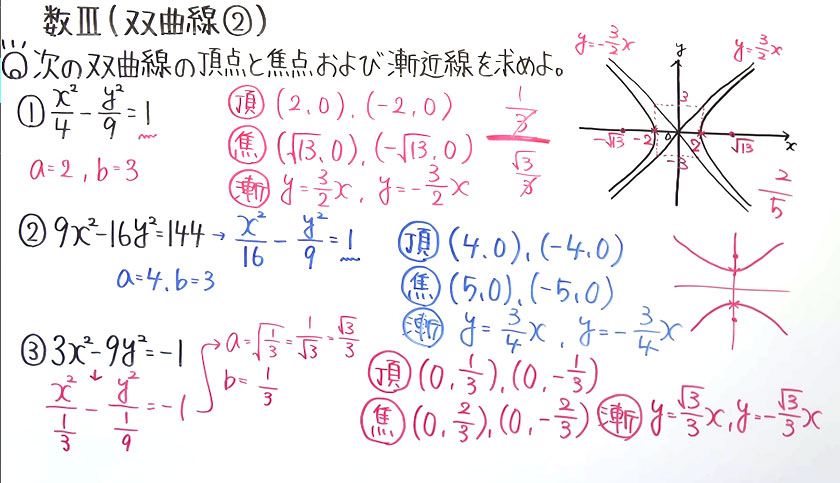 数Ⅲ(双曲線②)
Q 次の双曲線の頂点と焦点、および漸近線を求めよ。
① x²/4 - y²/9 = 1
a=2, b=3
頂 (2,0), (-2,0)
焦 (√13,0), (-√13,0)
漸 y=3/2x, y=-3/2x
1/3
√3/3
y=-3/2x
y
y=3/2x
3
-√13 -2 0 2 √13 x
-3
2/5
② 9x²-16y²=144 → x²/16 - y²/9 = 1
a=4, b=3
頂 (4,0), (-4,0)
焦 (5,0), (-5,0)
漸 y=3/4x, y=-3/4x
③ 3x²-9y²=-1
x²/(1/3) - y²/(1/9) = -1
a=√(1/3)=1/√3=√3/3
b=1/3
頂 (0,1/3), (0,-1/3)
焦 (0,2/3), (0,-2/3) 漸 y=√3/3x, y=-√3/3x